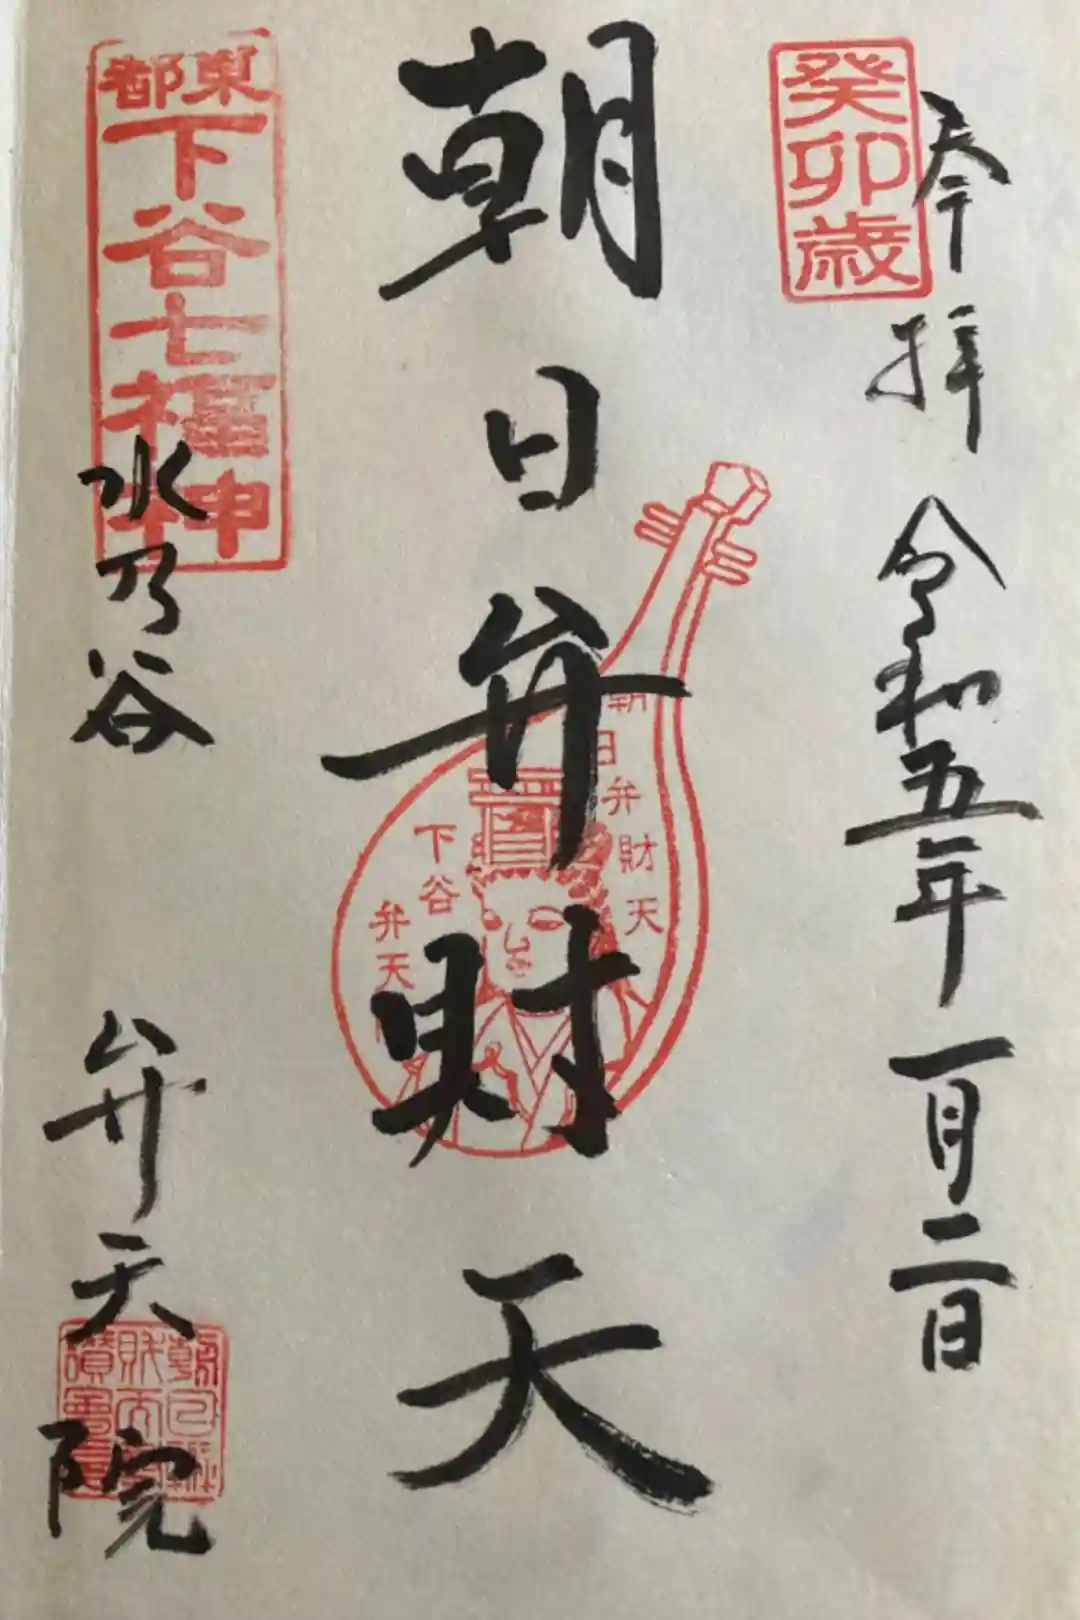 奉拝
令和五年
一月二日
癸卯歳
朝日弁財天
朝日弁財天
下谷
弁天
東都
下谷七福神
水乃谷
弁天院